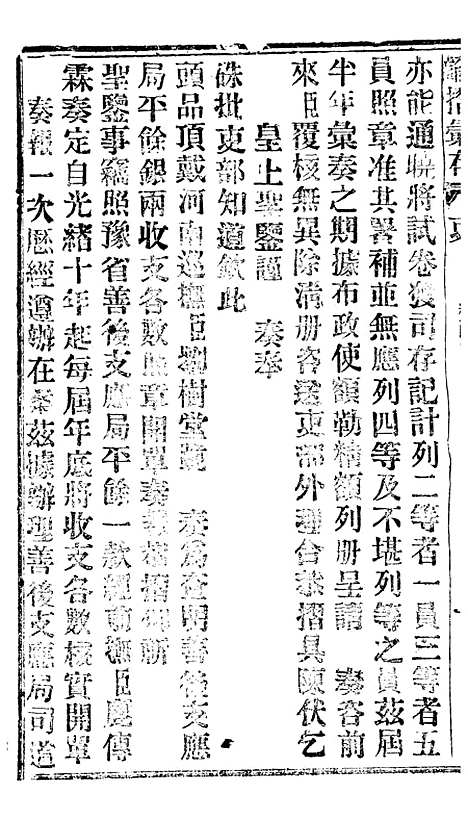 諭摺彙存 吏
亦能通曉將試卷發司存記計列二等者一員三等者五
員照章准其署補並無應列四等及不堪列等之員茲屆
半年彙奏之期據布政使額勒精額列册呈請 奏咨前
來臣覆核無異除清册咨送吏部外理合恭摺具陳伏乞
皇上聖鑒謹 奏奉
硃批吏部知道欽此
頭品頂戴河南巡撫臣劉樹堂跪 奏爲查明善後支應
局平餘銀兩收支各數照章開單奏報恭摺仰祈
聖鑒事竊照豫省善後支應局平餘一款經前撫臣鹿傳
霖奏定自光緒十年起每屆年底將收支各數核實開單
奏報一次歷經遵辦在案茲據辦理善後支應局司道